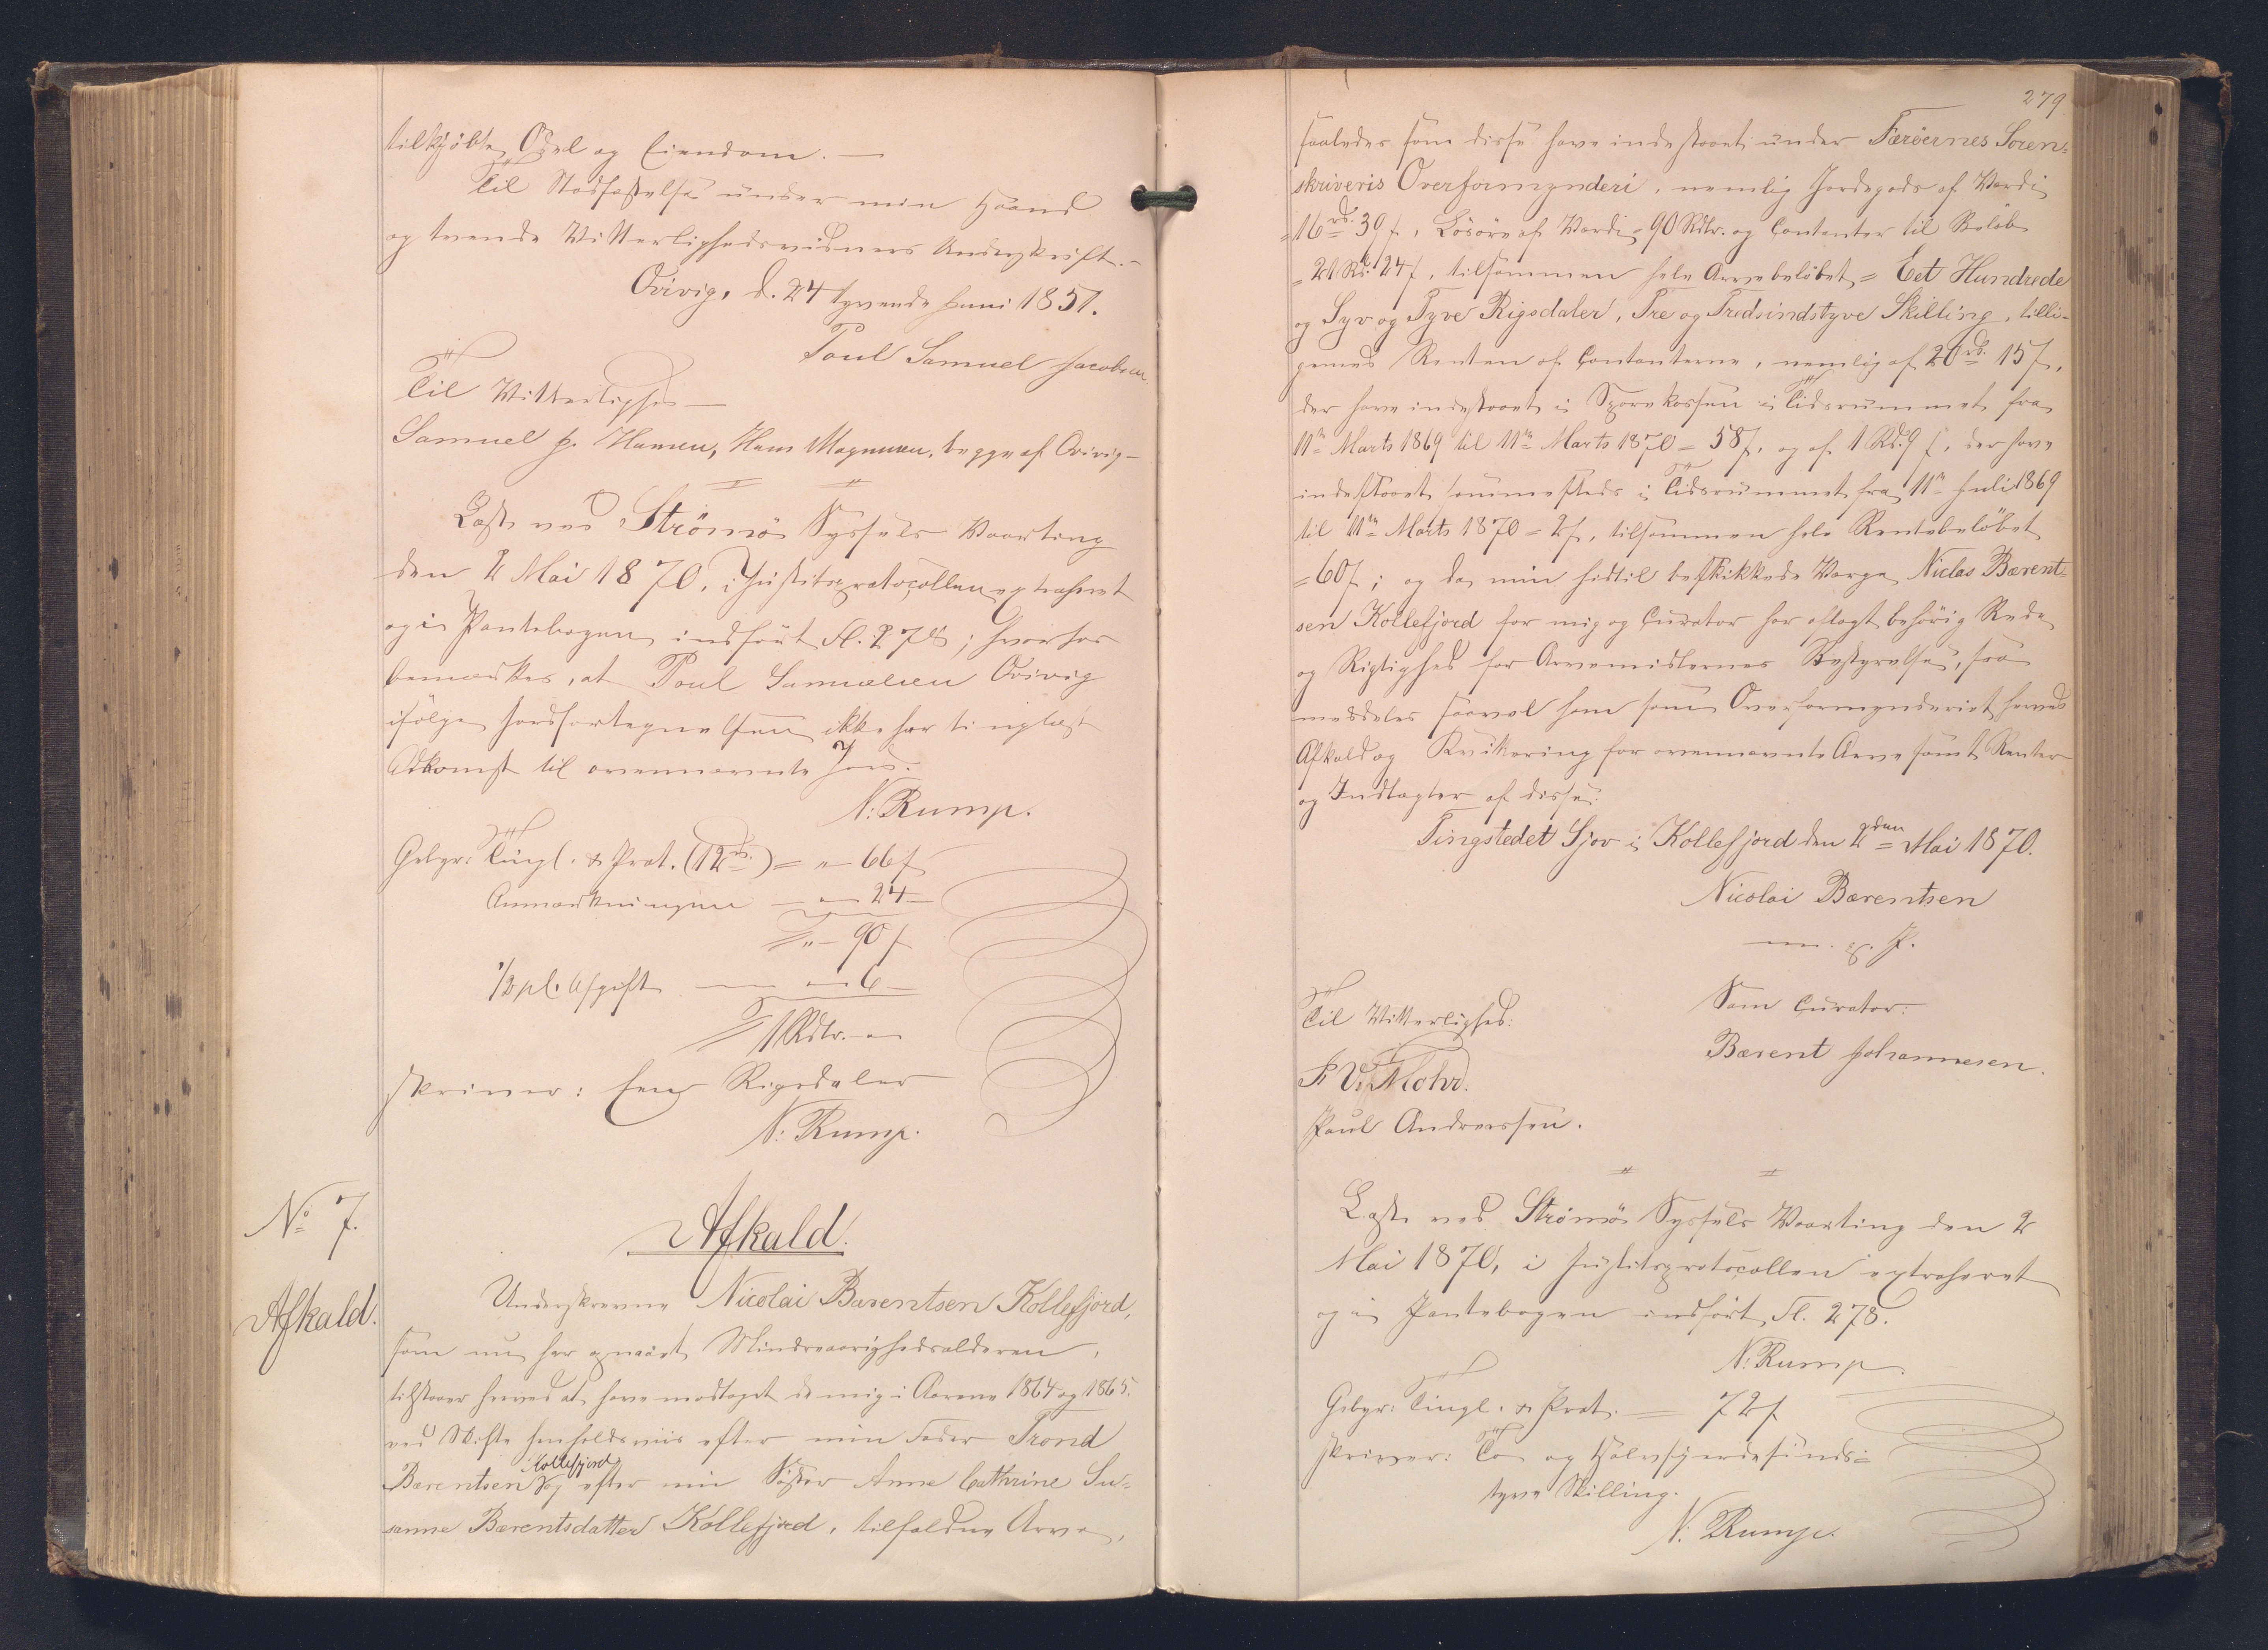 tilkjöbte Odel og Eiendom. —
Til Stadfæstelse under min Haand
og tvende Vitterlighedsvidners Underskrift. –
Qvivig, d. 24 tyvende Juni 1851.
Poul Samuel Jacobsen
Til Vitterlighed —
Samuel J. Hansen, Hans Magnussen, begge af Qvivig –
Læst ved Strömö Syssels Vaarting
den 2 Mai 1870, i Justitsprotocollen extraheret
og i Pantebogen indfört Fl. 278; hvorhos
bemærkes, at Poul Samuelsen Qvivig
ifölge Jordfortegnelsen ikke har tinglæst
Adkomst til ovennævnte Jord.
N: Rump.
Gebyr: Tingl. & Prot. (12 rd.) = „ – 66 f
Anmærkningen — „ – 24 –
„ – 90 f
1/2 pC. Afgift — „ – 6 –
1 Rdlr. „
skriver: Een Rigsdaler
N: Rump.
No 7.
Afkald.
Afkald.
Underskrevne Nicolai Barentsen Kollefjord,
som nu har opnaaet Mindreaarighedsalderen,
tilstaaer herved at have modtaget de mig i Aarene 1864 og 1865.
ved Skifte henholdsviis efter min Fader Trond
Barentsen Kollefjord og efter min Söster Anna Cathrine Su-
sanne Bærentsdatter Kollefjord, tilfaldne Arve,
279
saaledes som disse have indestaaet under Færöernes Soren-
skriveris Overformynderi, nemlig Jordegods af Værdi
= 16 rd. 39 f, Lösöre af Værdi = 90 Rdlr. og Contanter til Belöb
= 21 Rd. 24 f, tilsammen hele Arvebelöbet = Eet Hundrede
og Syv og Tyve Rigsdaler, Tre og Tredsindstyve Skilling, tilli-
gemed Renten af Contanterne, nemlig af 20 rd. 15 f,
der have indestaaet i Sparekassen i Tidsrummet fra
11te Marts 1869 til 11te Marts 1870 = 58 f, og af 1 Rd. 9 f, der have
indestaaet sammesteds i Tidsrummet fra 11te Juli 1869
til 11te Marts 1870 = 2 f, tilsammen hele Rentebelöbet
= 60 f; og da min hidtil beskikkede Værge Niclas Bærent-
sen Kollefjord for mig og Curator har aflagt behörig Rede
og Rigtighed for Arvemidlernes Bestyrelse, saa
meddeles saavel ham som Overformynderiet herved
Afkald og Kvittering for ovennævnte Arve samt Renter
og Indtægter af disse.
Tingstedet Sjov i Kollefjord den 2den Mai 1870.
Nicolai Bærentsen
m. f. P.
Til Vitterlighed:
Som Curator:
Bærent Johannesen.
F. V. Mohr.
Paul Andreassen.
Læst ved Strömö Syssels Vaarting den 2
Mai 1870, i Justitsprotocollen extraheret
og i Pantebogen indfört Fl. 278.
N: Rump
Gebyr: Tingl. & Prot. — 72 f
skriver: To og Halvfjerdesinds-
tyve Skilling.
N: Rump.